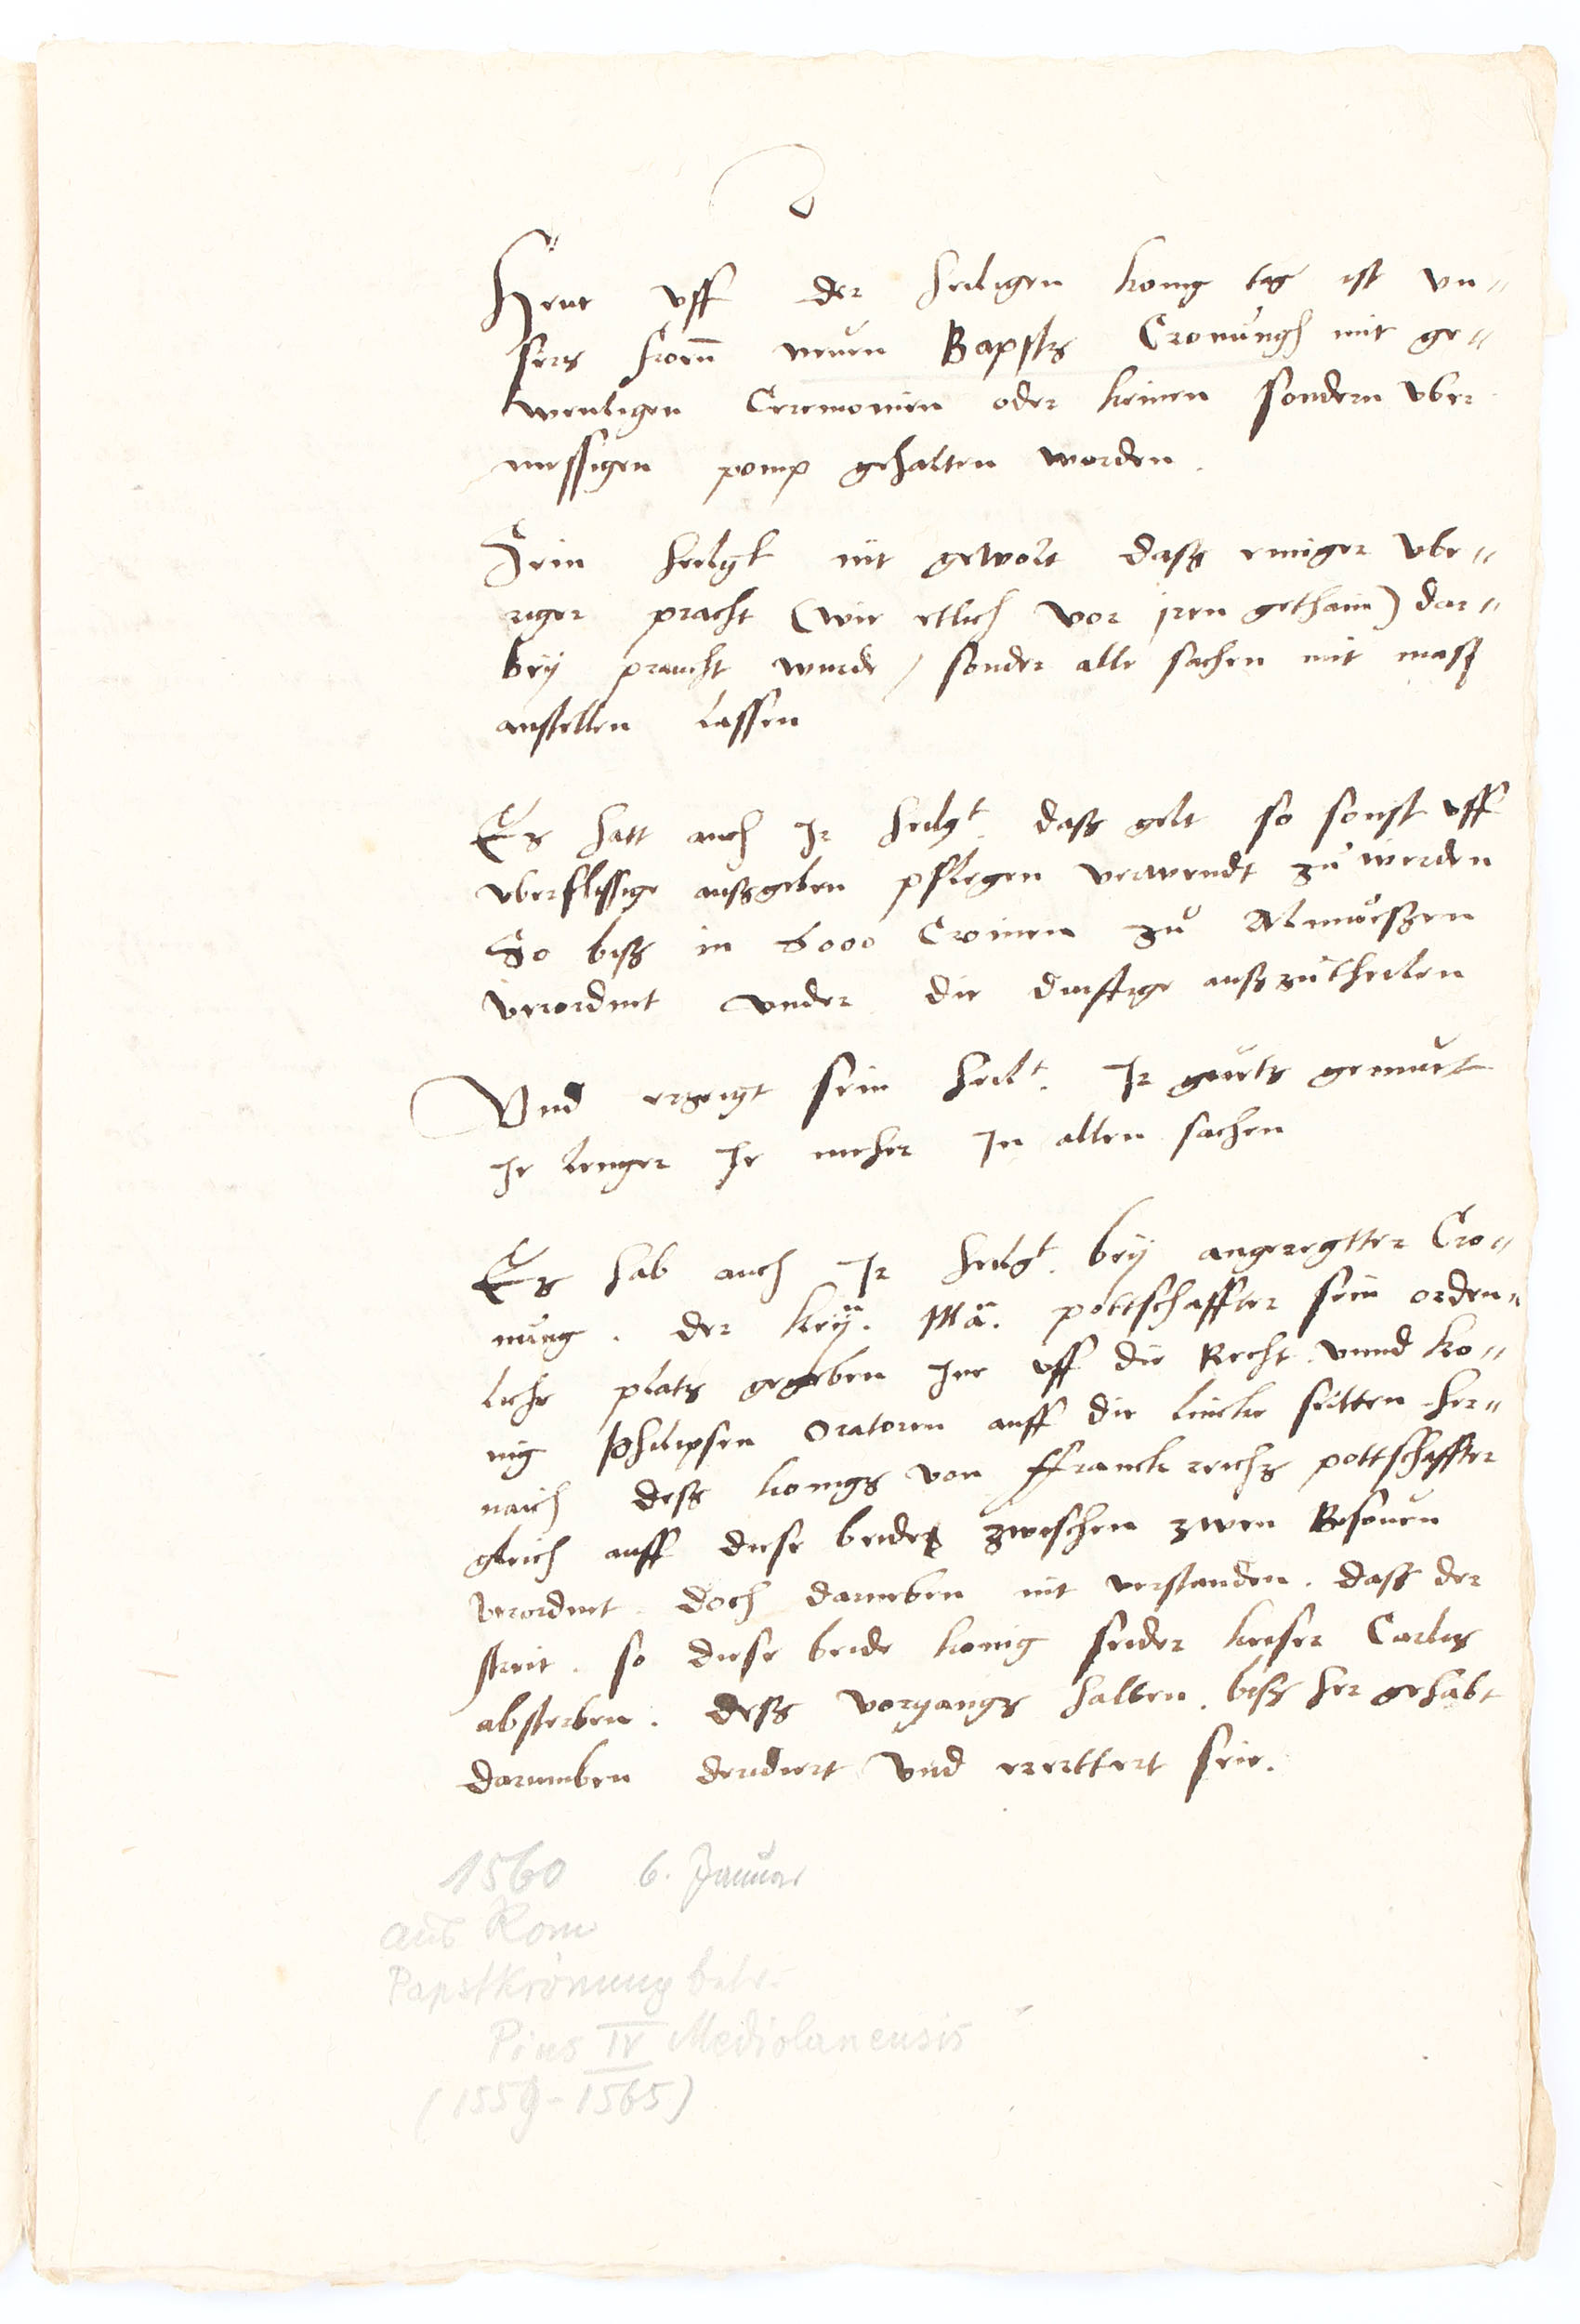 Heut vff der heiligen konig tag ist vn=
sers hern neuen Bapsts Cronungh mit ge=
wenligen Ceremonien oder keinen sondern vber
messigen pomp gehalten worden.
Sein heilgt nit gewolt dass einiger vbe=
riger pracht (wie etlich vor jren gethain) dar=
bey praucht wurde / sonder alle sachen mit mass
anstellen lassen
Es hatt auch Ir heilgt. dass gelt so sonst vff
vberflissige aussgeben pflegen verwendt zu werden
So biss in 6000 Cronen zu Almuessen
verordnet vnder die durfftige ausszutheilen
Vnd erzeigt sein heilt. Ir guets gemuet
Je lenger Je meher In allen sachen
Es hab auch Ir heilgt. bey angeregtter Cro=
nung. der Key. Ma. pottschaffter sein orden=
liche plats gegeben Jne vff die Recht vnnd ko=
nig Philipsen Oratoren auff die lincke seitten her=
nach dess konigs von Franckreichs pottschaffter
gleich auff diese beide zwischen zwen
verordnet. doch darneben nit verstanden. dass der
streit. so diese beide konig seider keiser Carles
absterben. dess vorgangs halben. biss her gehabt
darneben und erertteert seie.
1560 6. Januar
aus Rom
Papstkrönung betr.
Pius IV Mediolanensis
(1559-1565)